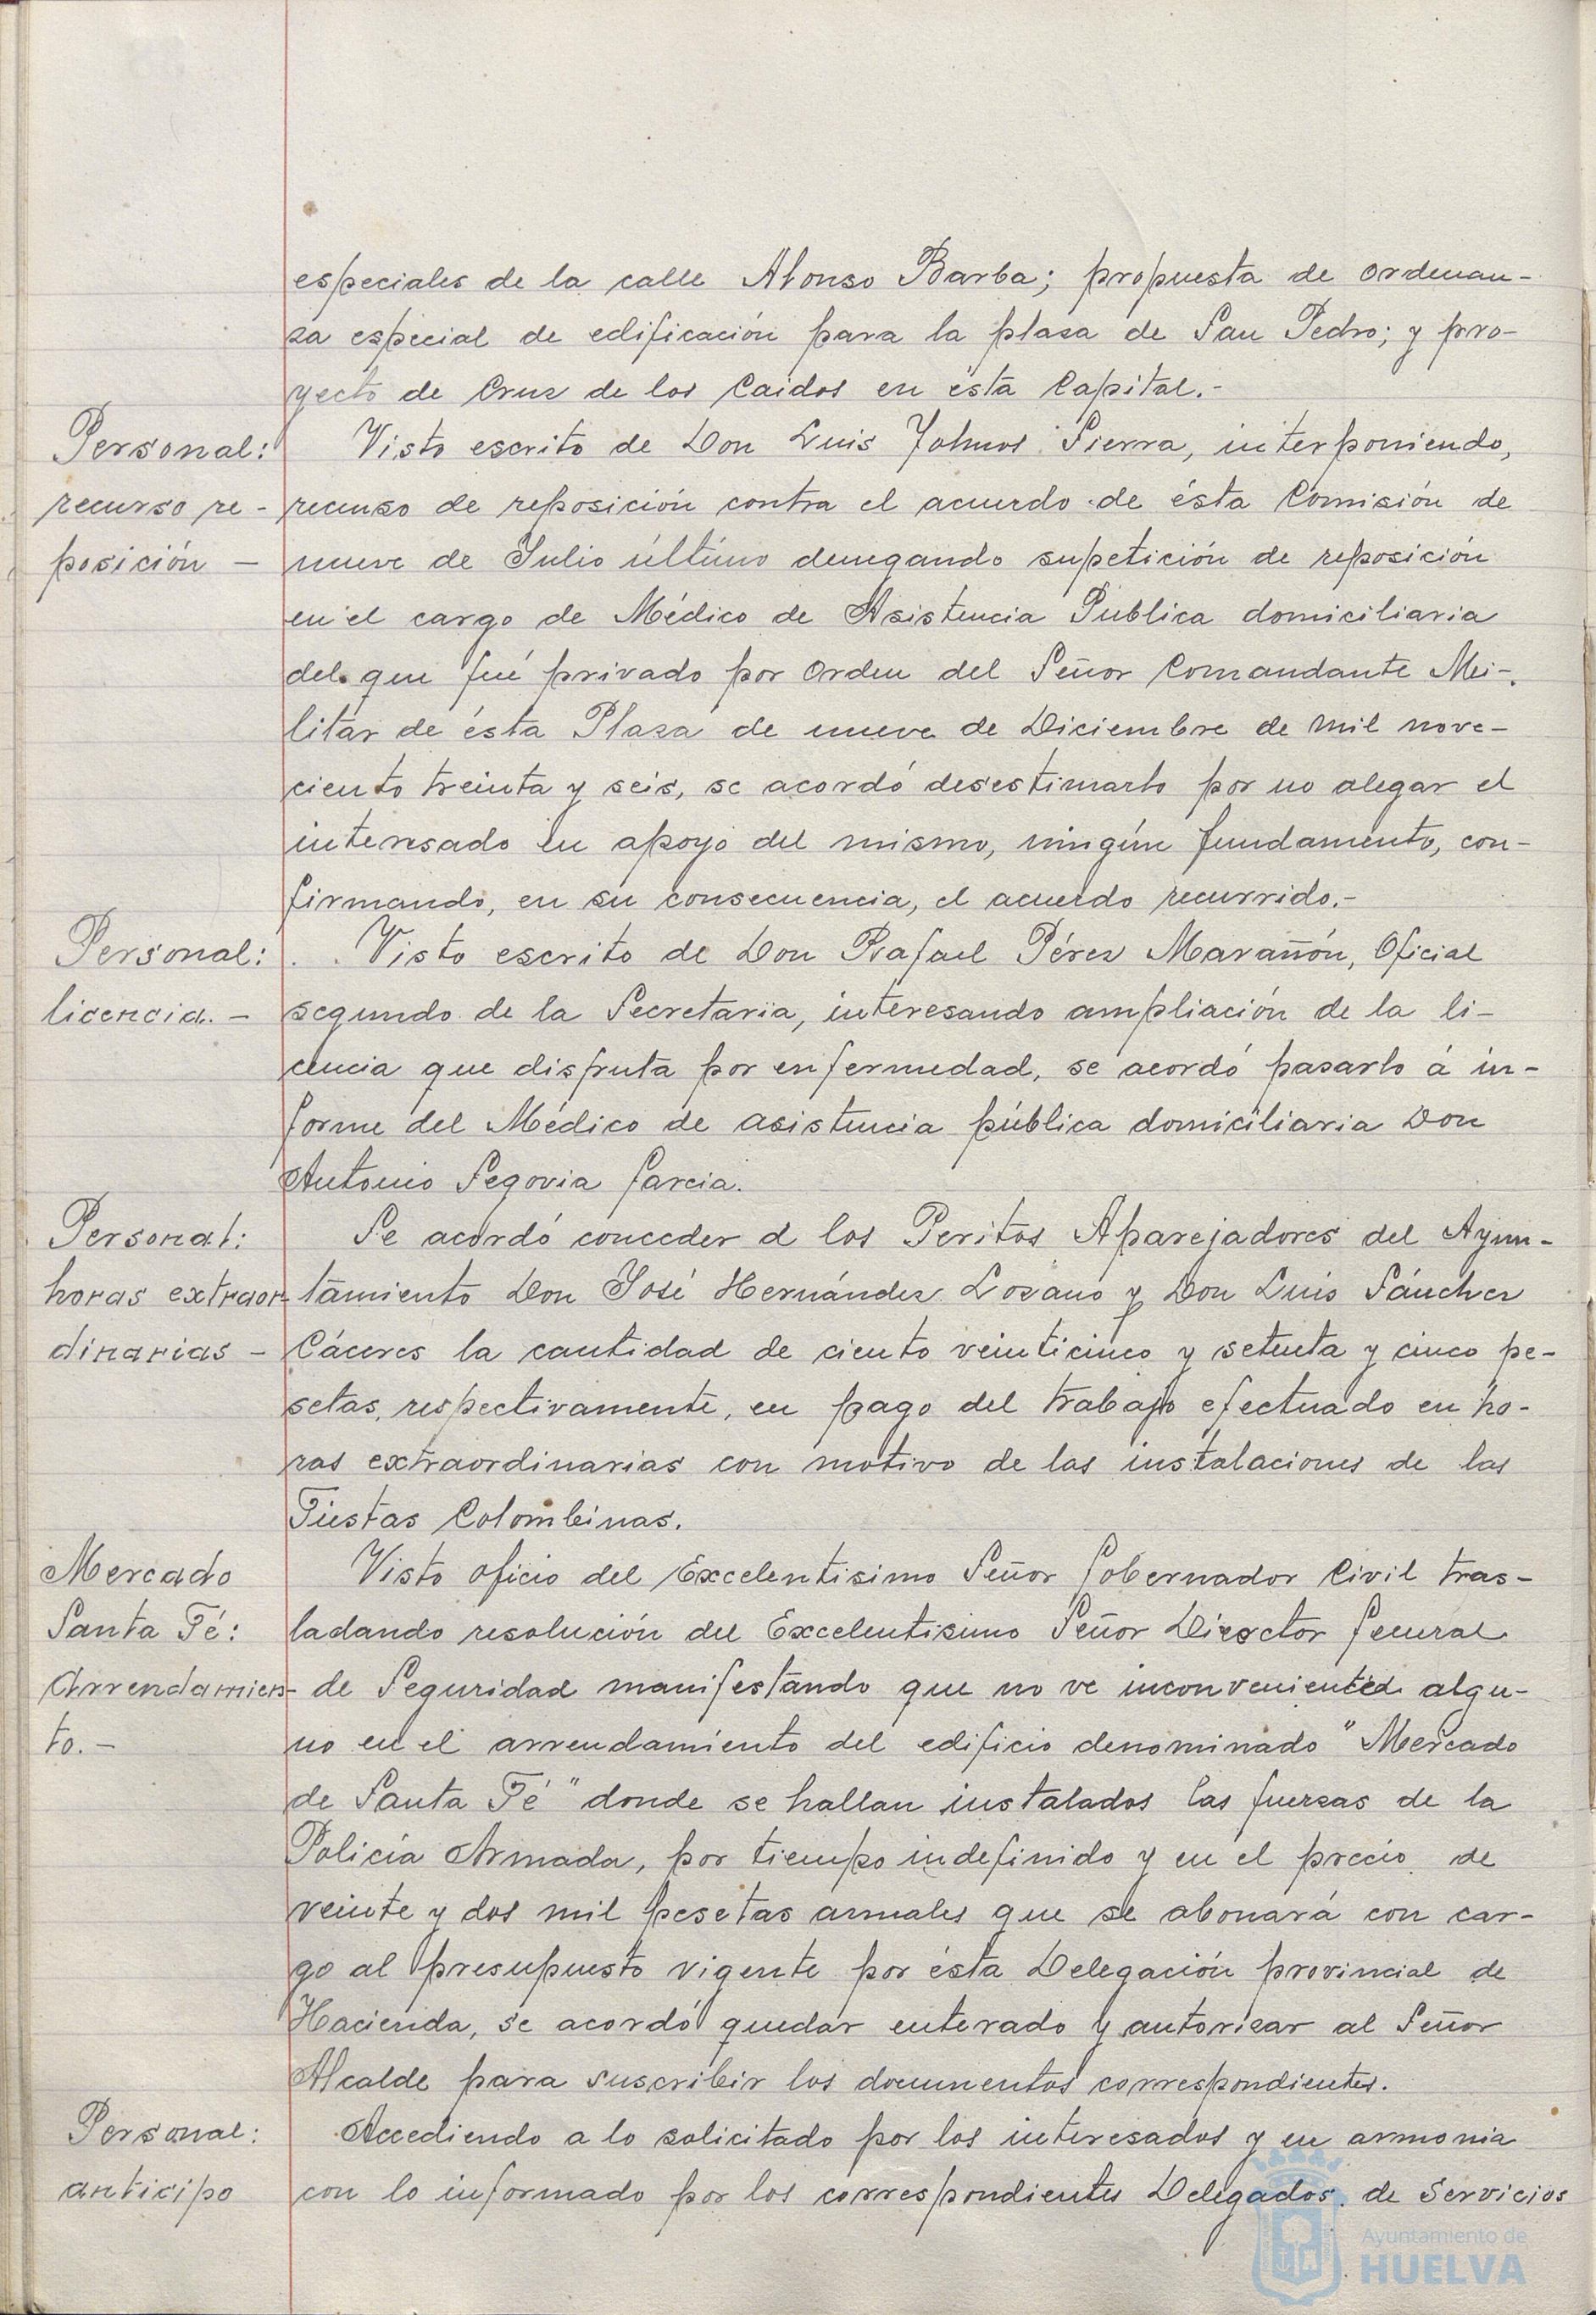 especiales de la calle Alonso Barba; propuesta de ordenan-
za especial de edificación para la plaza de San Pedro; y pro-
yecto de Cruz de los Caidos en ésta Capital.-
Personal:
recurso re-
posición -
Visto escrito de Don Luis Sierra, interponiendo,
recurso de reposición contra el acuerdo de ésta Comisión de
nueve de Julio último denegando su petición de reposición
en el cargo de Médico de Asistencia Publica domiciliaria
del que fué privado por orden del Señor Comandante Mi-
litar de ésta Plaza de nueve de Diciembre de mil nove-
ciento treinta y seis, se acordó desestimarlo por no alegar el
interesado en apoyo del mismo, ningún fundamento, con-
firmando, en su consecuencia, el acuerdo recurrido.-
Personal:
licencia.-
Visto escrito de Don Rafael Pérez Marañón, Oficial
segundo de la Secretaria, interesando ampliación de la li-
cencia que disfruta por enfermedad, se acordó pasarlo á in-
forme del Médico de asistencia pública domiciliaria Don
Antonio Segovia Garcia.
Personal:
horas extraor-
dinarias -
Se acordó conceder a los Peritos Aparejadores del Ayun-
tamiento Don José Hernández Lozano y Don Luis Sánchez
Cáceres la cantidad de ciento veinticinco y setenta y cinco pe-
setas, respectivamente, en pago del trabajo efectuado en ho-
ras extraordinarias con motivo de las instalaciones de las
Fiestas Colombinas.
Mercado
Santa Fé:
Arrendamien-
to.-
Visto oficio del Excelentisimo Señor Gobernador Civil tras-
ladando resolución del Excelentisimo Señor Director General
de Seguridad manifestando que no ve inconveniente algu-
no en el arrendamiento del edificio denominado "Mercado
de Santa Fé" donde se hallan instalados las fuerzas de la
Policía Armada, por tiempo indefinido y en el precio de
veinte y dos mil pesetas anuales que se abonará con car-
go al presupuesto vigente por ésta Delegación provincial de
Hacienda, se acordó quedar enterado y autorizar al Señor
Alcalde para suscribir los documentos correspondientes.
Personal:
anticipo
Accediendo a lo solicitado por los interesados y en armonia
con lo informado por los correspondientes Delegados de Servicios
Ayuntamiento de
HUELVA